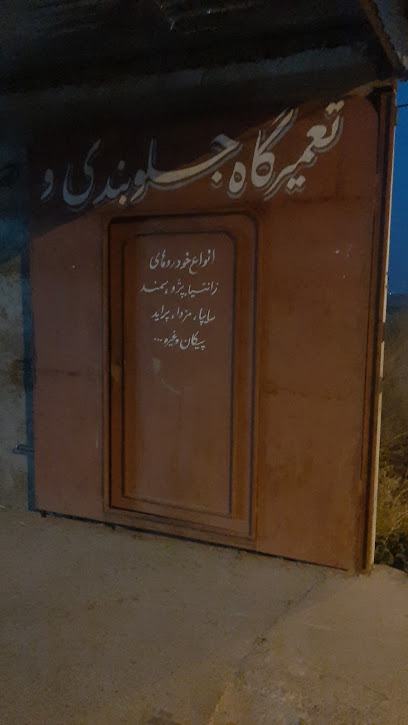 تعمیرگاه جلوبندی و
انواع خودروهای
زانتیا، پژو، سمند
سایپا، مزدا، پراید
پیکان وغیره ...